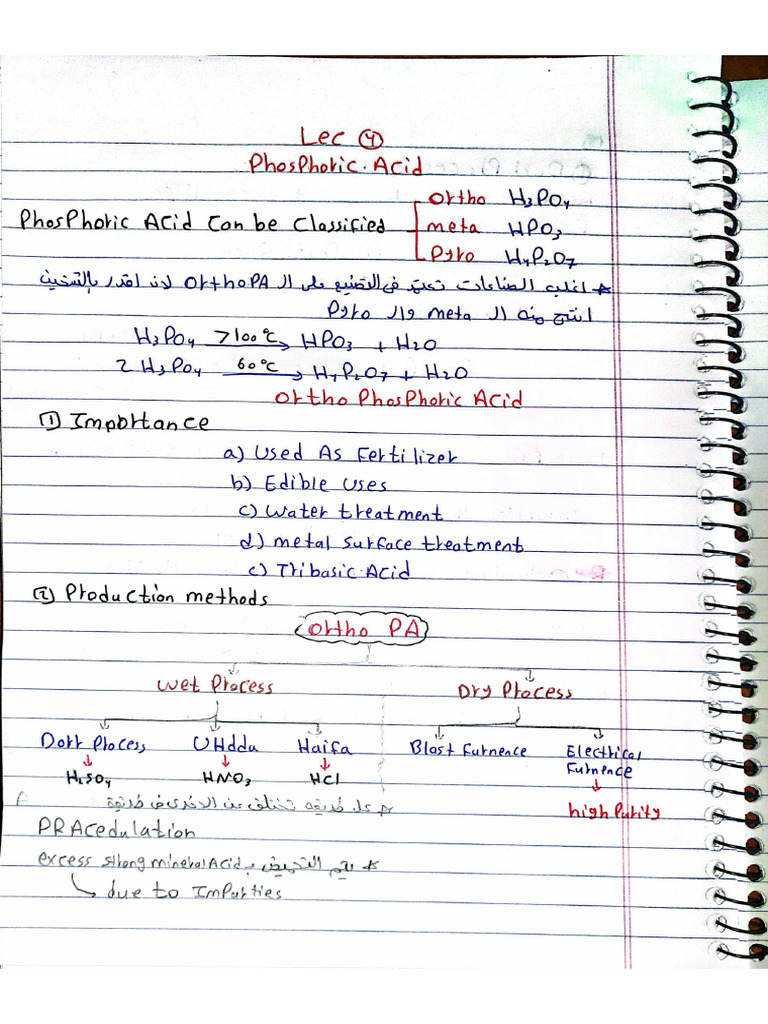 Lec ④
Phosphoric.Acid
Phosphoric Acid Can be Classified
Ortho H3PO4
meta HPO3
Pyro H4P2O7
* اغلب الصناعات تعتمد في التصنيع على ال Ortho PA لانه اقدر بالتسخين
انتج منه ال meta وال Pyro
H3PO4 >100°C → HPO3 + H2O
2 H3PO4 60°C → H4P2O7 + H2O
Ortho Phosphoric Acid
① Importance
a) Used As Fertilizer
b) Edible Uses
c) Water treatment
d) metal surface treatment
e) Tribasic.Acid
② Production methods
Ortho PA
Wet Process Dry Process
Dorr Process UHdda Haifa Blast Furnence Electrical Furnence
H2SO4 HNO3 HCl high Purity
* كل طريقه تختلف عن الاخرى في طريقة
PR Acedulation
* يتم التحميض ب excess strong mineral Acid
due to Imparties